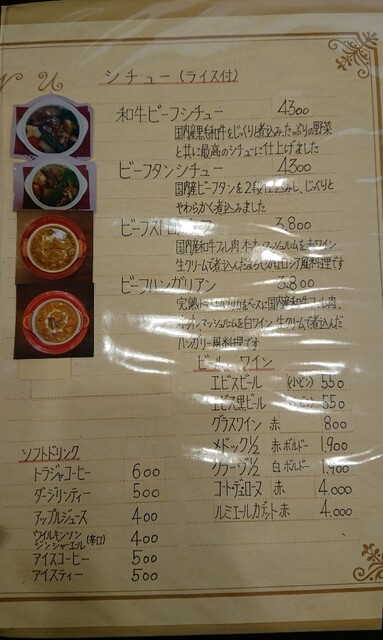 ＮＵ
シチュー(ライス付)
和牛ビーフシチュー 4300
国内産黒毛和牛をじっくりと煮込み、たっぷりの野菜
と共に最高のシチューに仕上げました
ビーフタンシチュー 4300
国内産ビーフタンを2段仕込みし、じっくりと
やわらかく煮込みました
ビーフストロ 3,800
国内産和牛フィレ肉 マッシュルームを赤ワイン
生クリームで煮込んだ ロシア風料理です
ビーフハンガリアン 3,800
完熟トマト パプリカをベースに国内産和牛フィレ肉、
マッシュルームを白ワイン 生クリームで煮込んだ
ハンガリー風料理です
ビール、ワイン
エビスビール (小ビン) 550
エビス黒ビール (小ビン) 550
グラスワイン 赤 800
メドック1/2 赤 ボルドー 1,900
グラーブ1/2 白 ボルドー 1,900
コートデュローヌ 赤 4,000
ルミエールカデット 赤 4,000
ソフトドリンク
トラジャコーヒー 600
ダージリンティー 500
アップルジュース 400
ウイルキンソン
ジンジャーエール (辛口) 400
アイスコーヒー 500
アイスティー 500